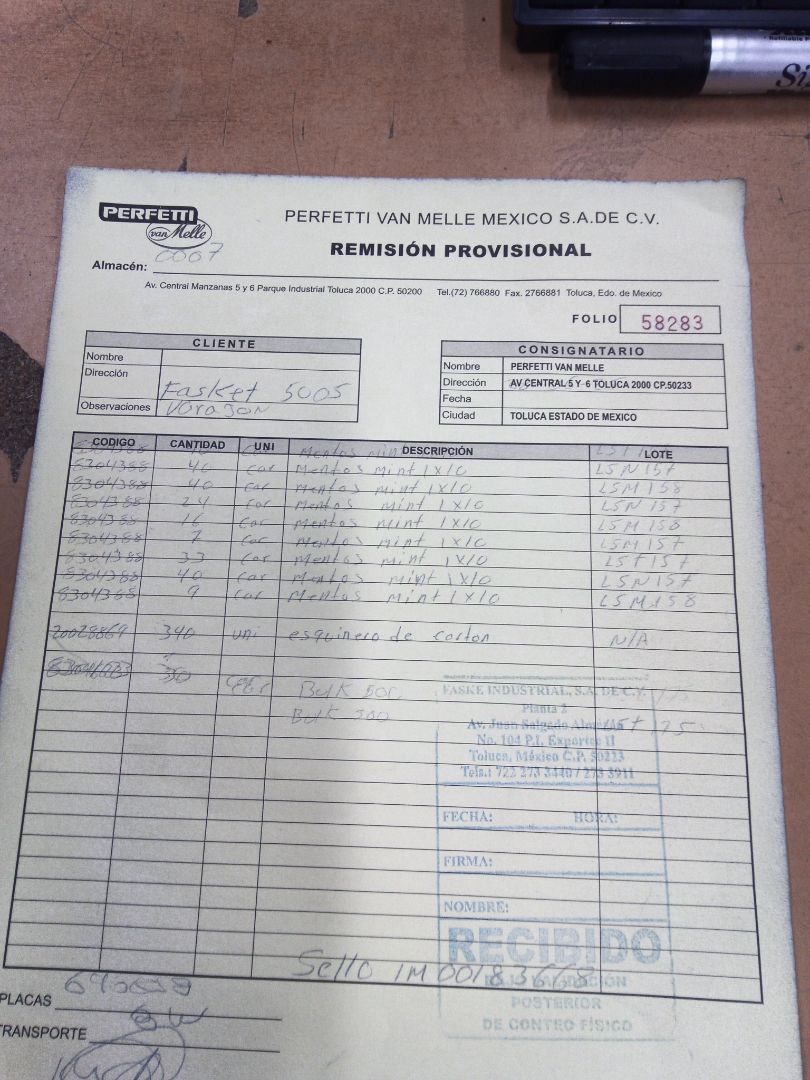 PERFETTI
van Melle
PERFETTI VAN MELLE MEXICO S.A.DE C.V.
REMISIÓN PROVISIONAL
Almacén: 0007
Av. Central Manzanas 5 y 6 Parque Industrial Toluca 2000 C.P. 50200 Tel.(72) 766880 Fax. 2766881 Toluca, Edo. de Mexico
FOLIO 58283
CLIENTE
Nombre
Dirección
Fasket 5005
Observaciones
CONSIGNATARIO
Nombre PERFETTI VAN MELLE
Dirección AV CENTRAL 5 Y 6 TOLUCA 2000 CP.50233
Fecha
Ciudad TOLUCA ESTADO DE MEXICO
CODIGO CANTIDAD UNI DESCRIPCIÓN LOTE
8304388 Mentos min
8304388 40 Car Mentos mint 1X10 LSN157
8304388 40 Car Mentos mint 1X10 LSM158
8304388 24 Car Mentos mint 1X10 LSN157
8304388 16 Car Mentos mint 1X10 LSM158
8304388 7 Car Mentos mint 1X10 LSM157
8304388 33 Car Mentos mint 1X10 LST157
8304388 40 Car Mentos mint 1X10 LSN157
8304388 9 Car Mentos mint 1X10 LSM158
20028869 340 uni esquinero de carton N/A
Bulk 500
Bulk 500
FASKE INDUSTRIAL, S.A. DE C.V.
Planta 2
Av. Juan Salgado
No. 104 P.I. Exportec II
Toluca, México C.P. 50223
Tels.: 722 273 3440 / 273 3911
FECHA: HORA:
FIRMA:
NOMBRE:
RECIBIDO
Sello IM00183668
POSTERIOR
DE CONTEO FÍSICO
PLACAS
TRANSPORTE